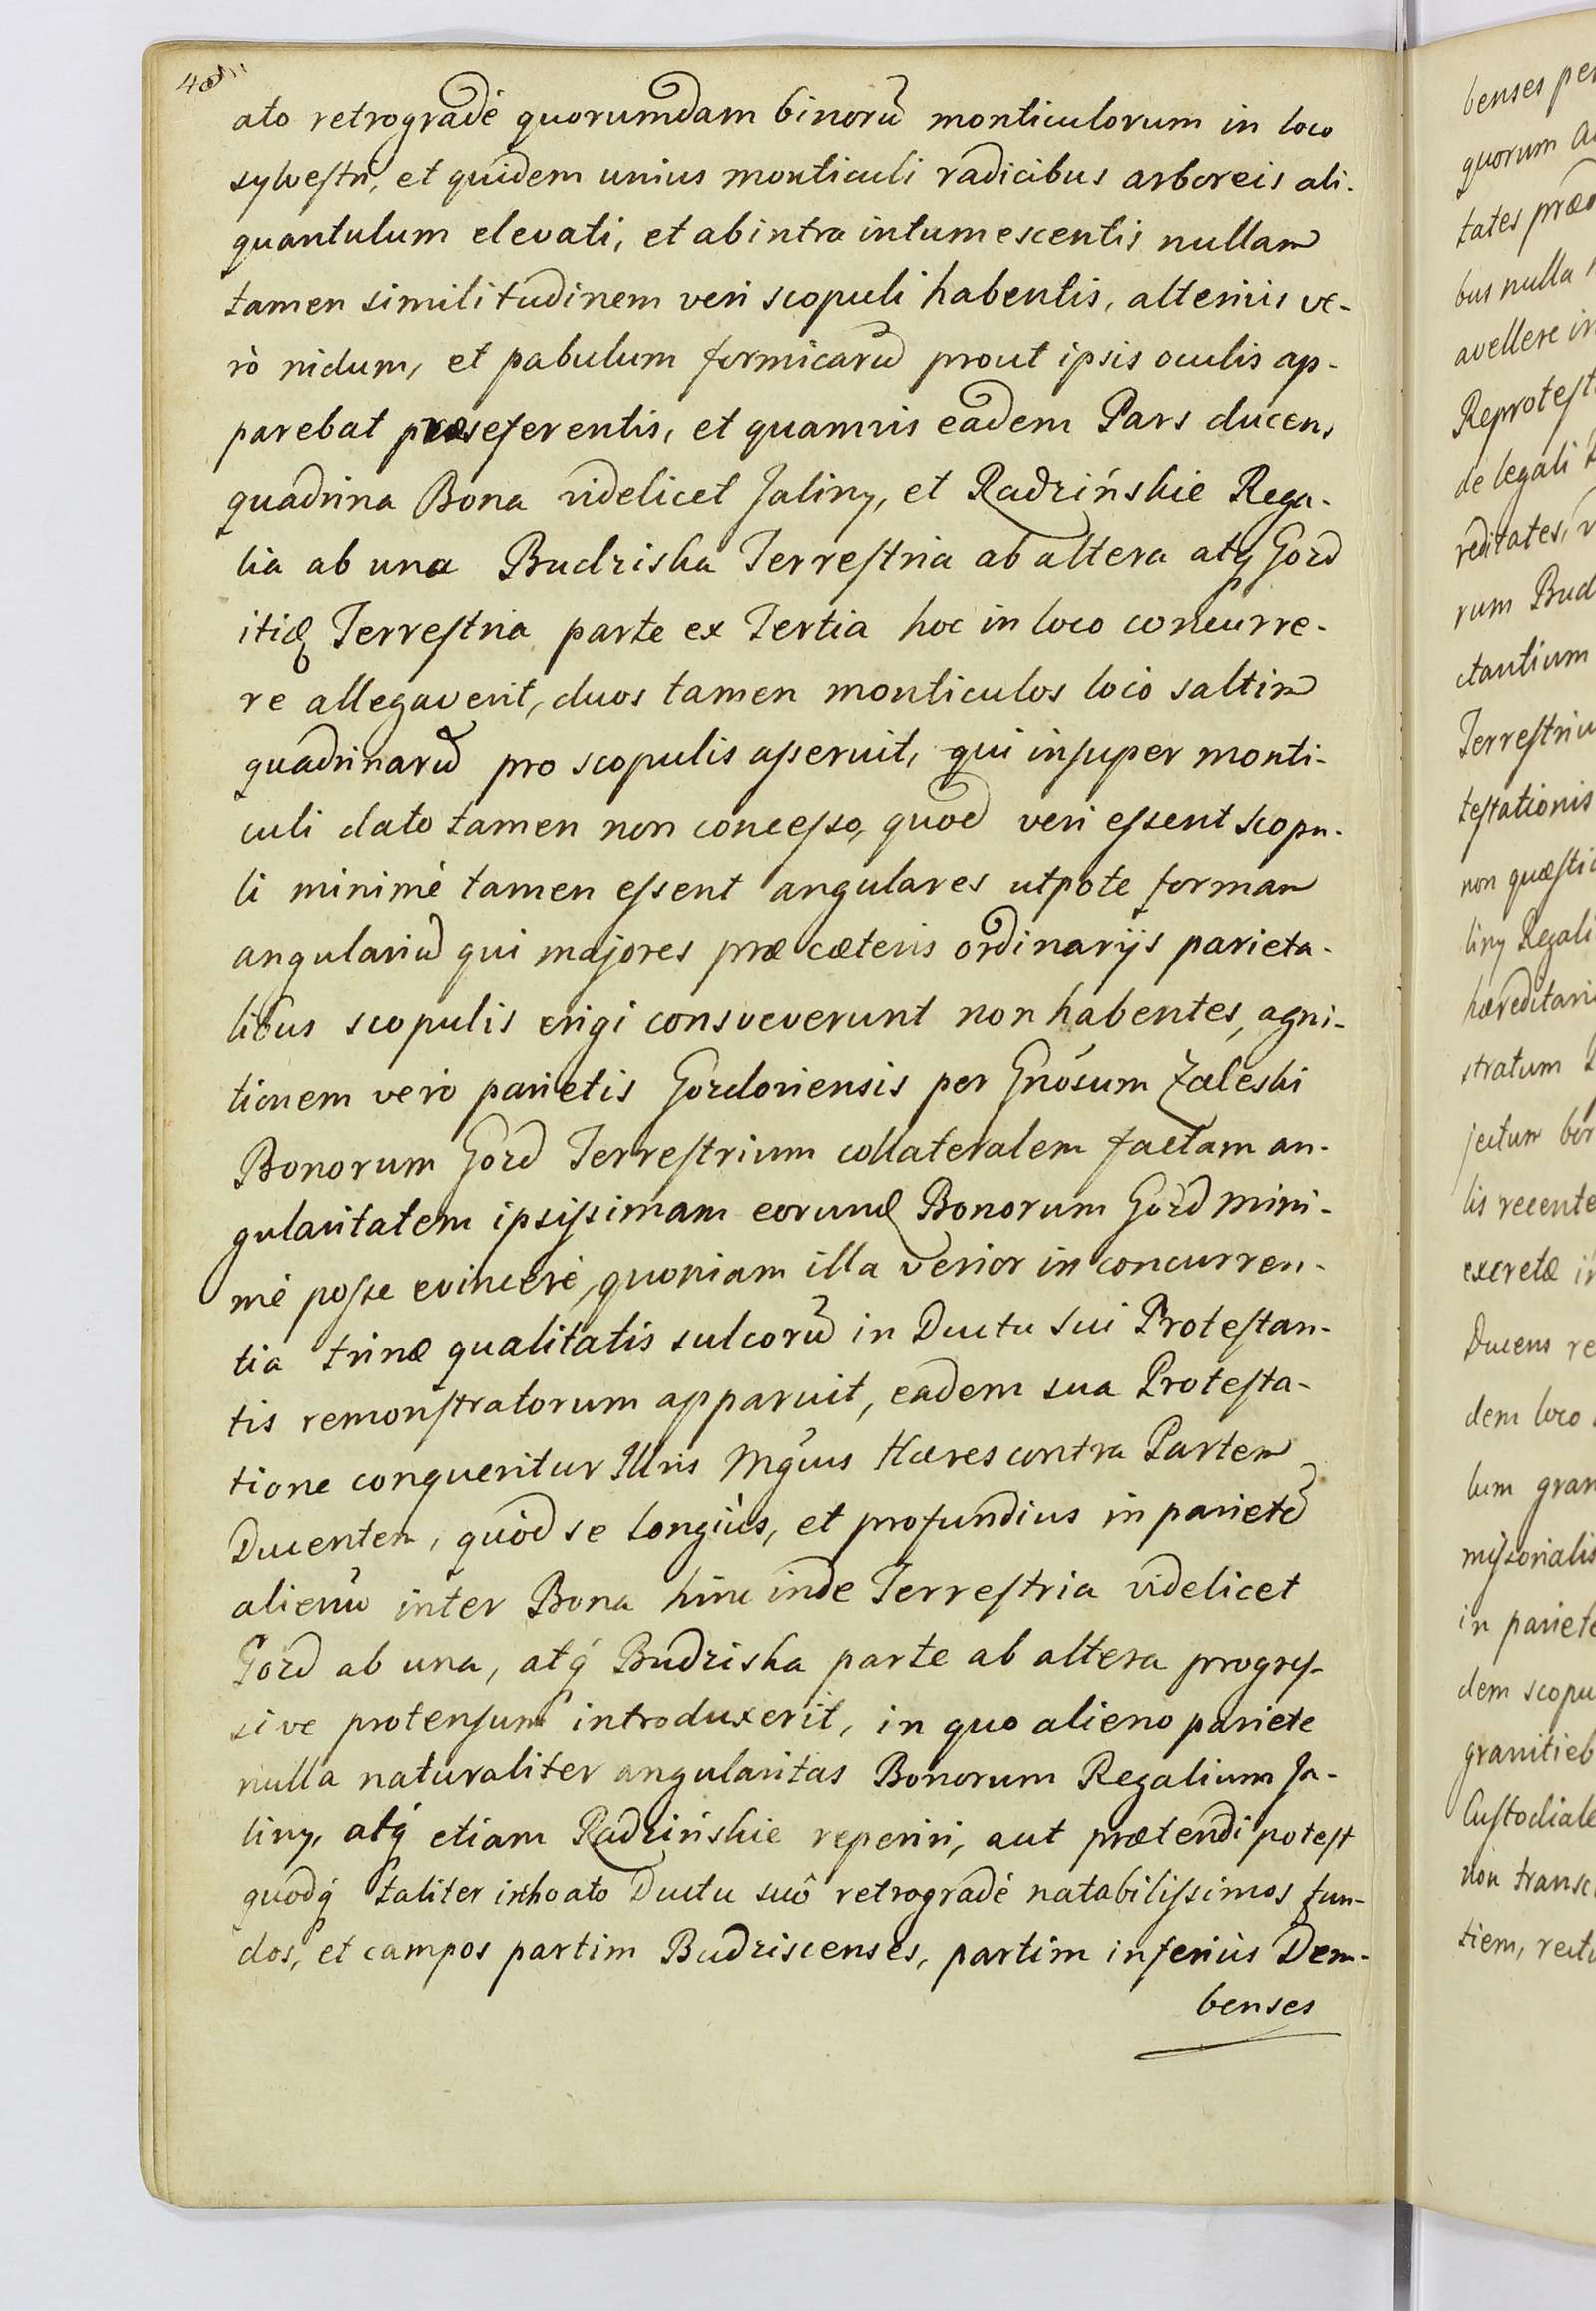 ato retrogradè quorumdam binorũ monticulorum in loco
sylvestri, et quidem unius monticuli radicibus arboreis ali-
quantulum elevati, et ab intra intumescentis nullam
tamen similitudinem veri scopuli habentis, alterius ve-
rò nidum, et pabulum formicarũ prout ipsis oculis ap-
parebat præseferentis, et quamvis eadem Pars ducens
quadrina Bona videlicet Jaliny, et Radzińskie Rega-
lia ab una Budziska Terrestria ab altera atq Gozd
itidę Terrestria parte ex Tertia hoc in loco concurre-
re allegaverit, duos tamen monticulos loco saltim
quadrinarũ pro scopulis asseruit, qui insuper monti-
culi dato tamen non concesso, quod veri essent scopu-
li minimè tamen essent angulares utpote formam
angulariũ qui majores præ cæteris ordinarijs parieta-
libus scopulis erigi consveverunt non habentes, agni-
tionem verò parietis Gozdoviensis per Gnosum Zaleski
Bonorum Gozd Terrestrium collateralem factam an-
gularitatem ipsissimam eorumd Bonorum Gozd mini-
mè posse evincere, quoniam illa verior in concurren-
tia trinæ qualitatis sulcorũ in Ductu sui Protestan-
tis remonstratorum apparuit, eadem sua Protesta-
tione conqueritur Illris Mgcus Hæres contra Partem
Ducentem, quòd se longiùs, et profundius in parietẽ
alienũ inter Bona hinc inde Terrestria videlicet
Gozd ab una, atq́ Budziska parte ab altera progres-
sive protensum introduxerit, in quo alieno pariete
nulla naturaliter angularitas Bonorum Regalium Ja-
liny, atq́ etiam Radzińskie reperiri, aut prætendi potest
quodq́ taliter inhoato Ductu suô retrogradè natabilissimos fun-
dos, et campos partim Budziscenses, partim inferiùs Dem-
benses
benses per
tates præd
bus nulla
avellere in
Reprotest
de legali
reditates,
rum Bud
ctantium
Terrestriu
testationis
non quæsti
liny Regali
hæreditari
stratum
lis recente
excretæ in
Ducens re
dem loco
lum gran
missorialis
in pariete
dem scopu
granitieb
Custodiale
non transc
tiem, rectu